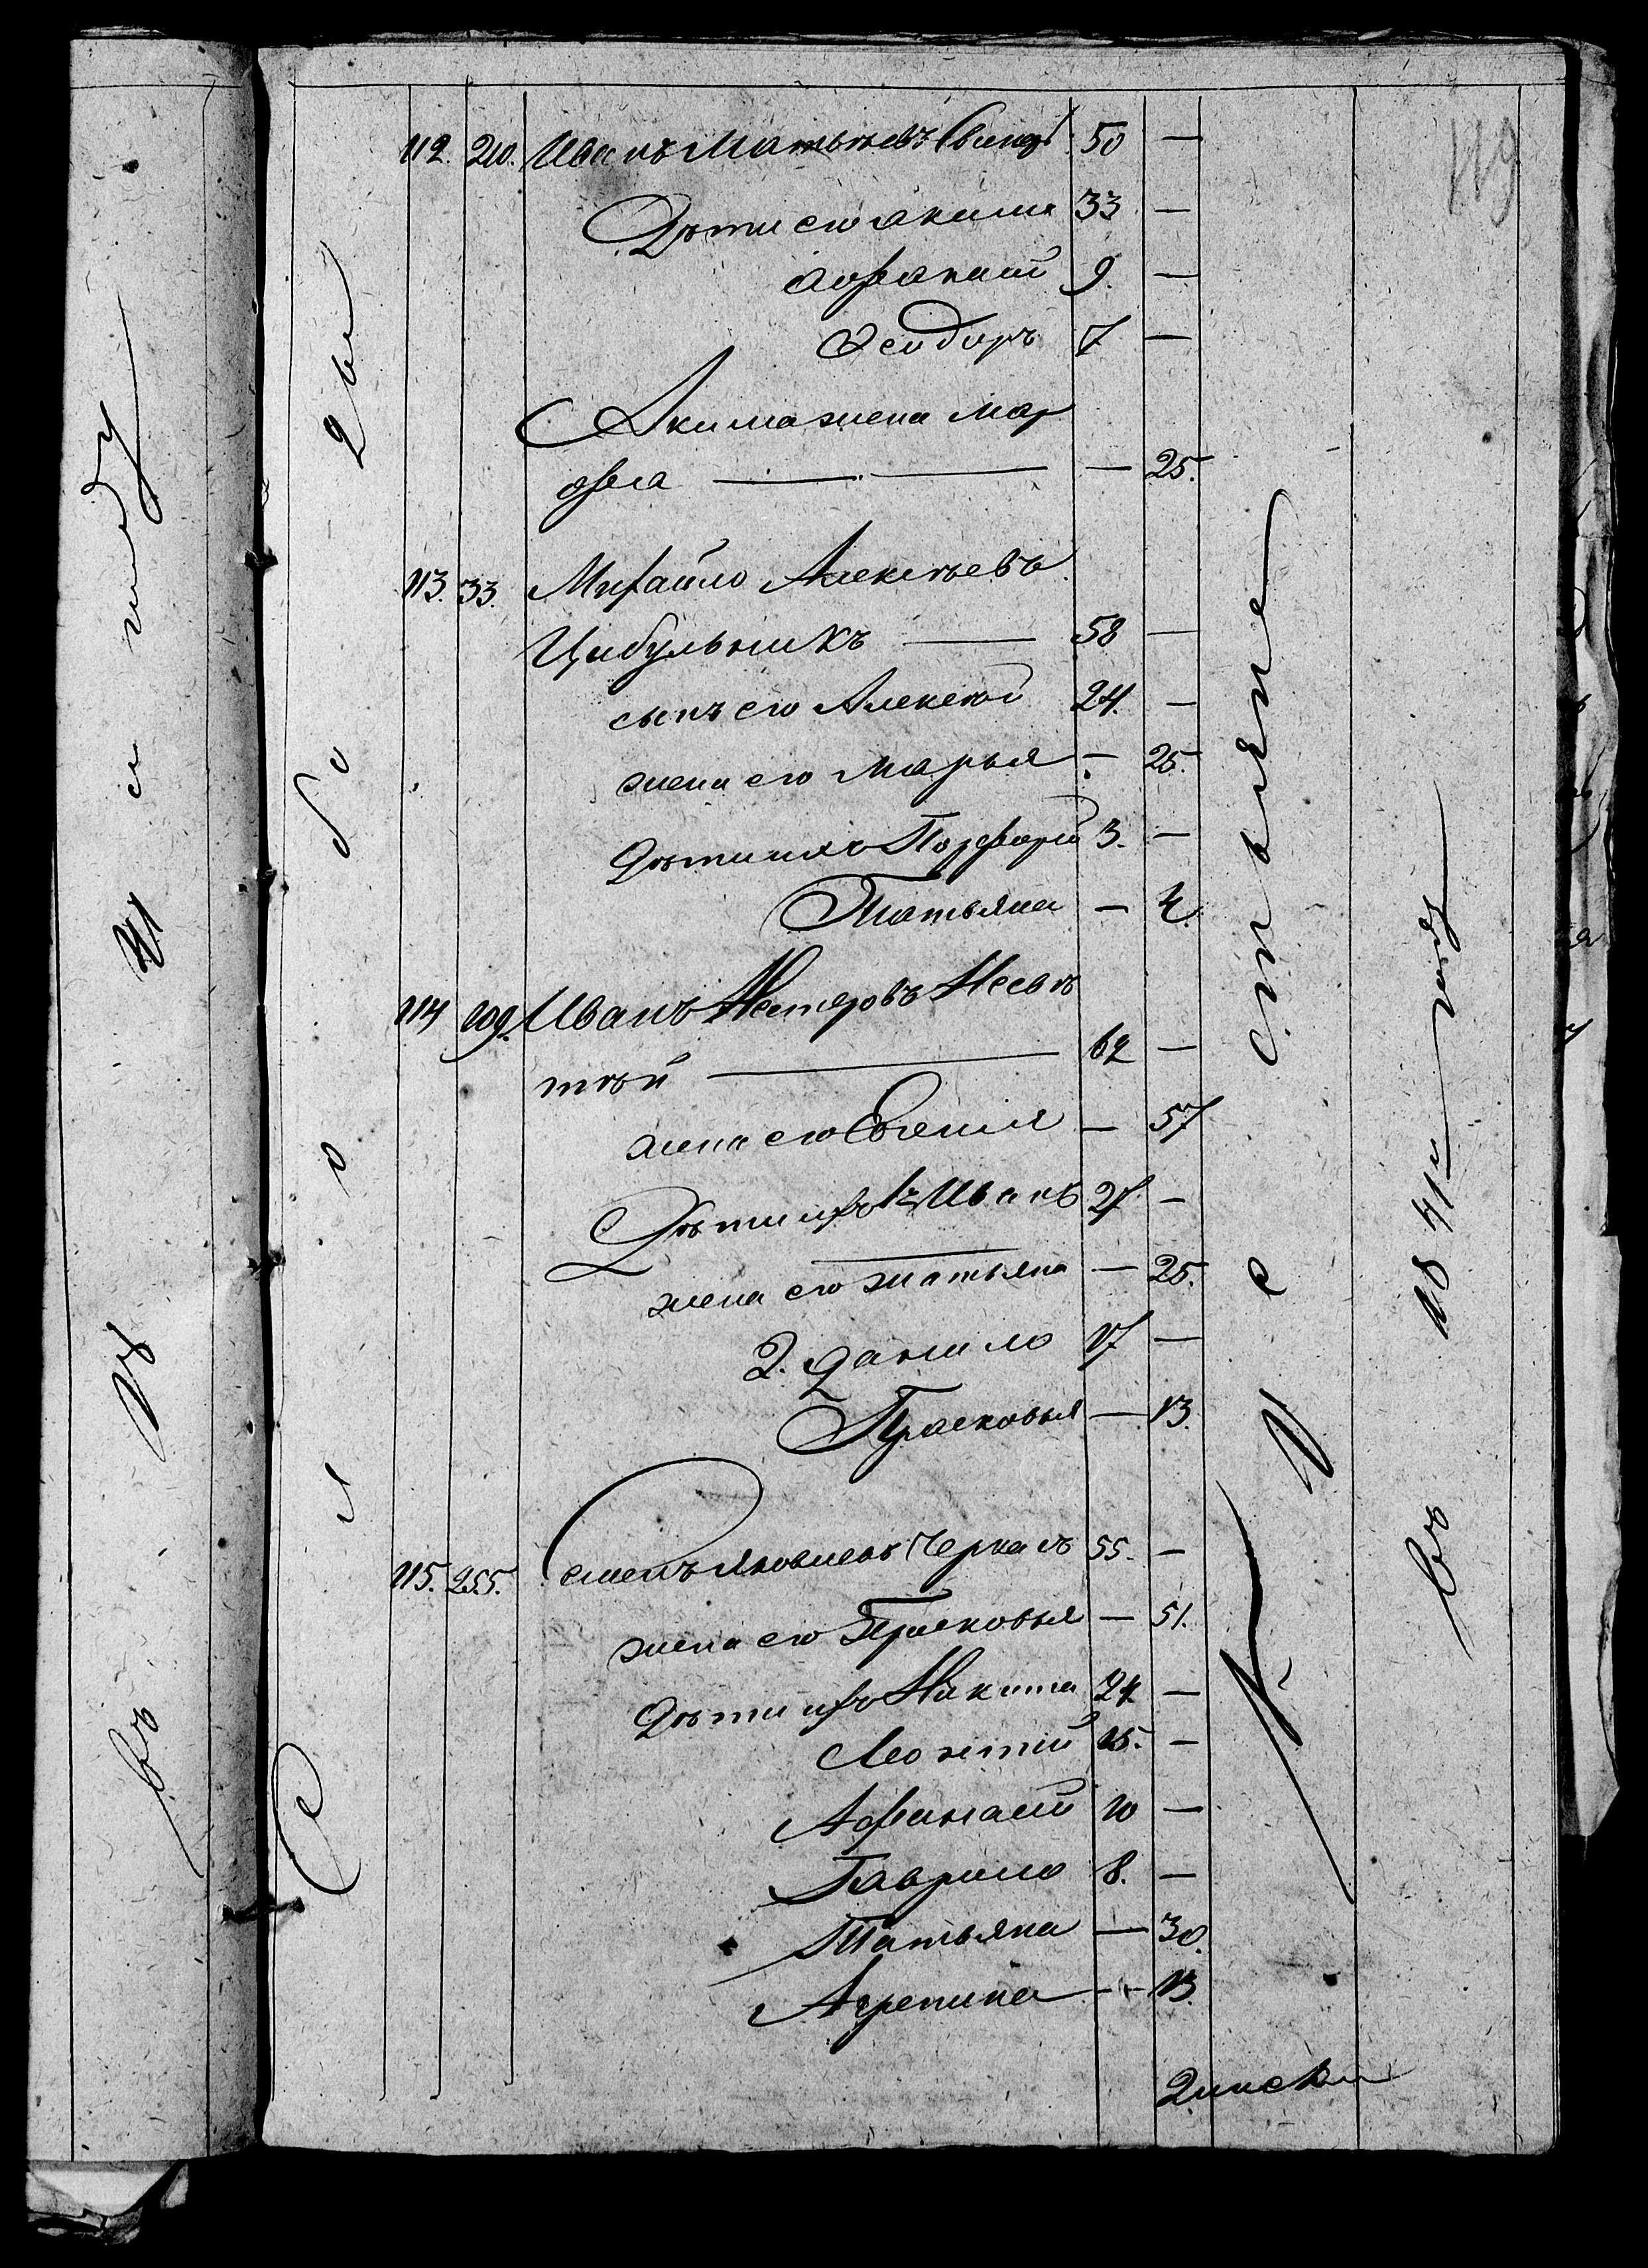 119
112. 210. Иванъ Матвѣевъ 50 —
Дѣти его Акимъ 33 —
Афанасий 9. —
Феодоръ 7 —
Акима жена Мар
фа — — 25.
113. 33. Михайло Алексѣевъ
Цибульникъ — 58 —
сынъ его Алексѣй 24. —
жена его Марья — 25.
Дѣти ихъ Порфирій 3. —
Татьяна — 4.
114 109. Иванъ Нестеровъ Несвѣ
тный — 62 —
жена его Евгенія — 57
Дѣти ихъ 1й Иванъ 27. —
жена его Татьяна — 25.
2. Данило 17 —
Прасковья — 13.
115. 255. Семенъ Яковлевъ Черкасъ 55. —
жена его Прасковья — 51.
Дѣти ихъ Никита 24 —
Леонтій 15. —
Афанасій 10 —
Гаврило 8. —
Татьяна — 30.
Агрепина — 13.
въ 1841 м году
Село
2 й
Крестьяне
въ 1841 м году